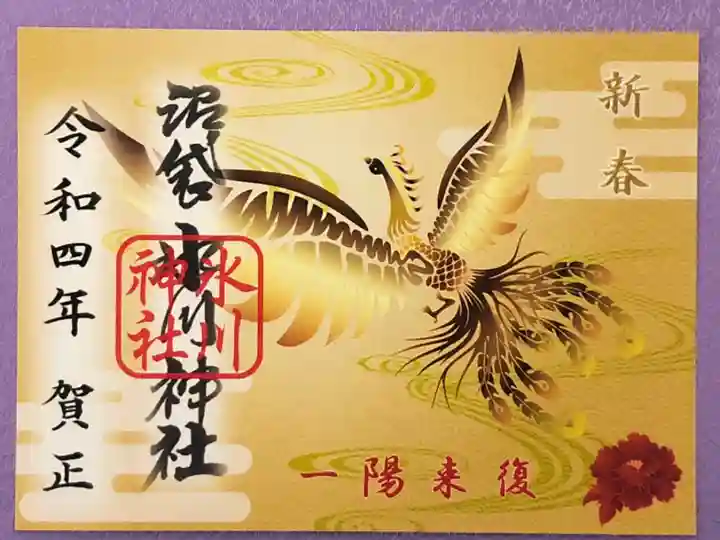 新春
沼袋 氷川神社
氷川
神社
令和四年 賀正
一陽来復